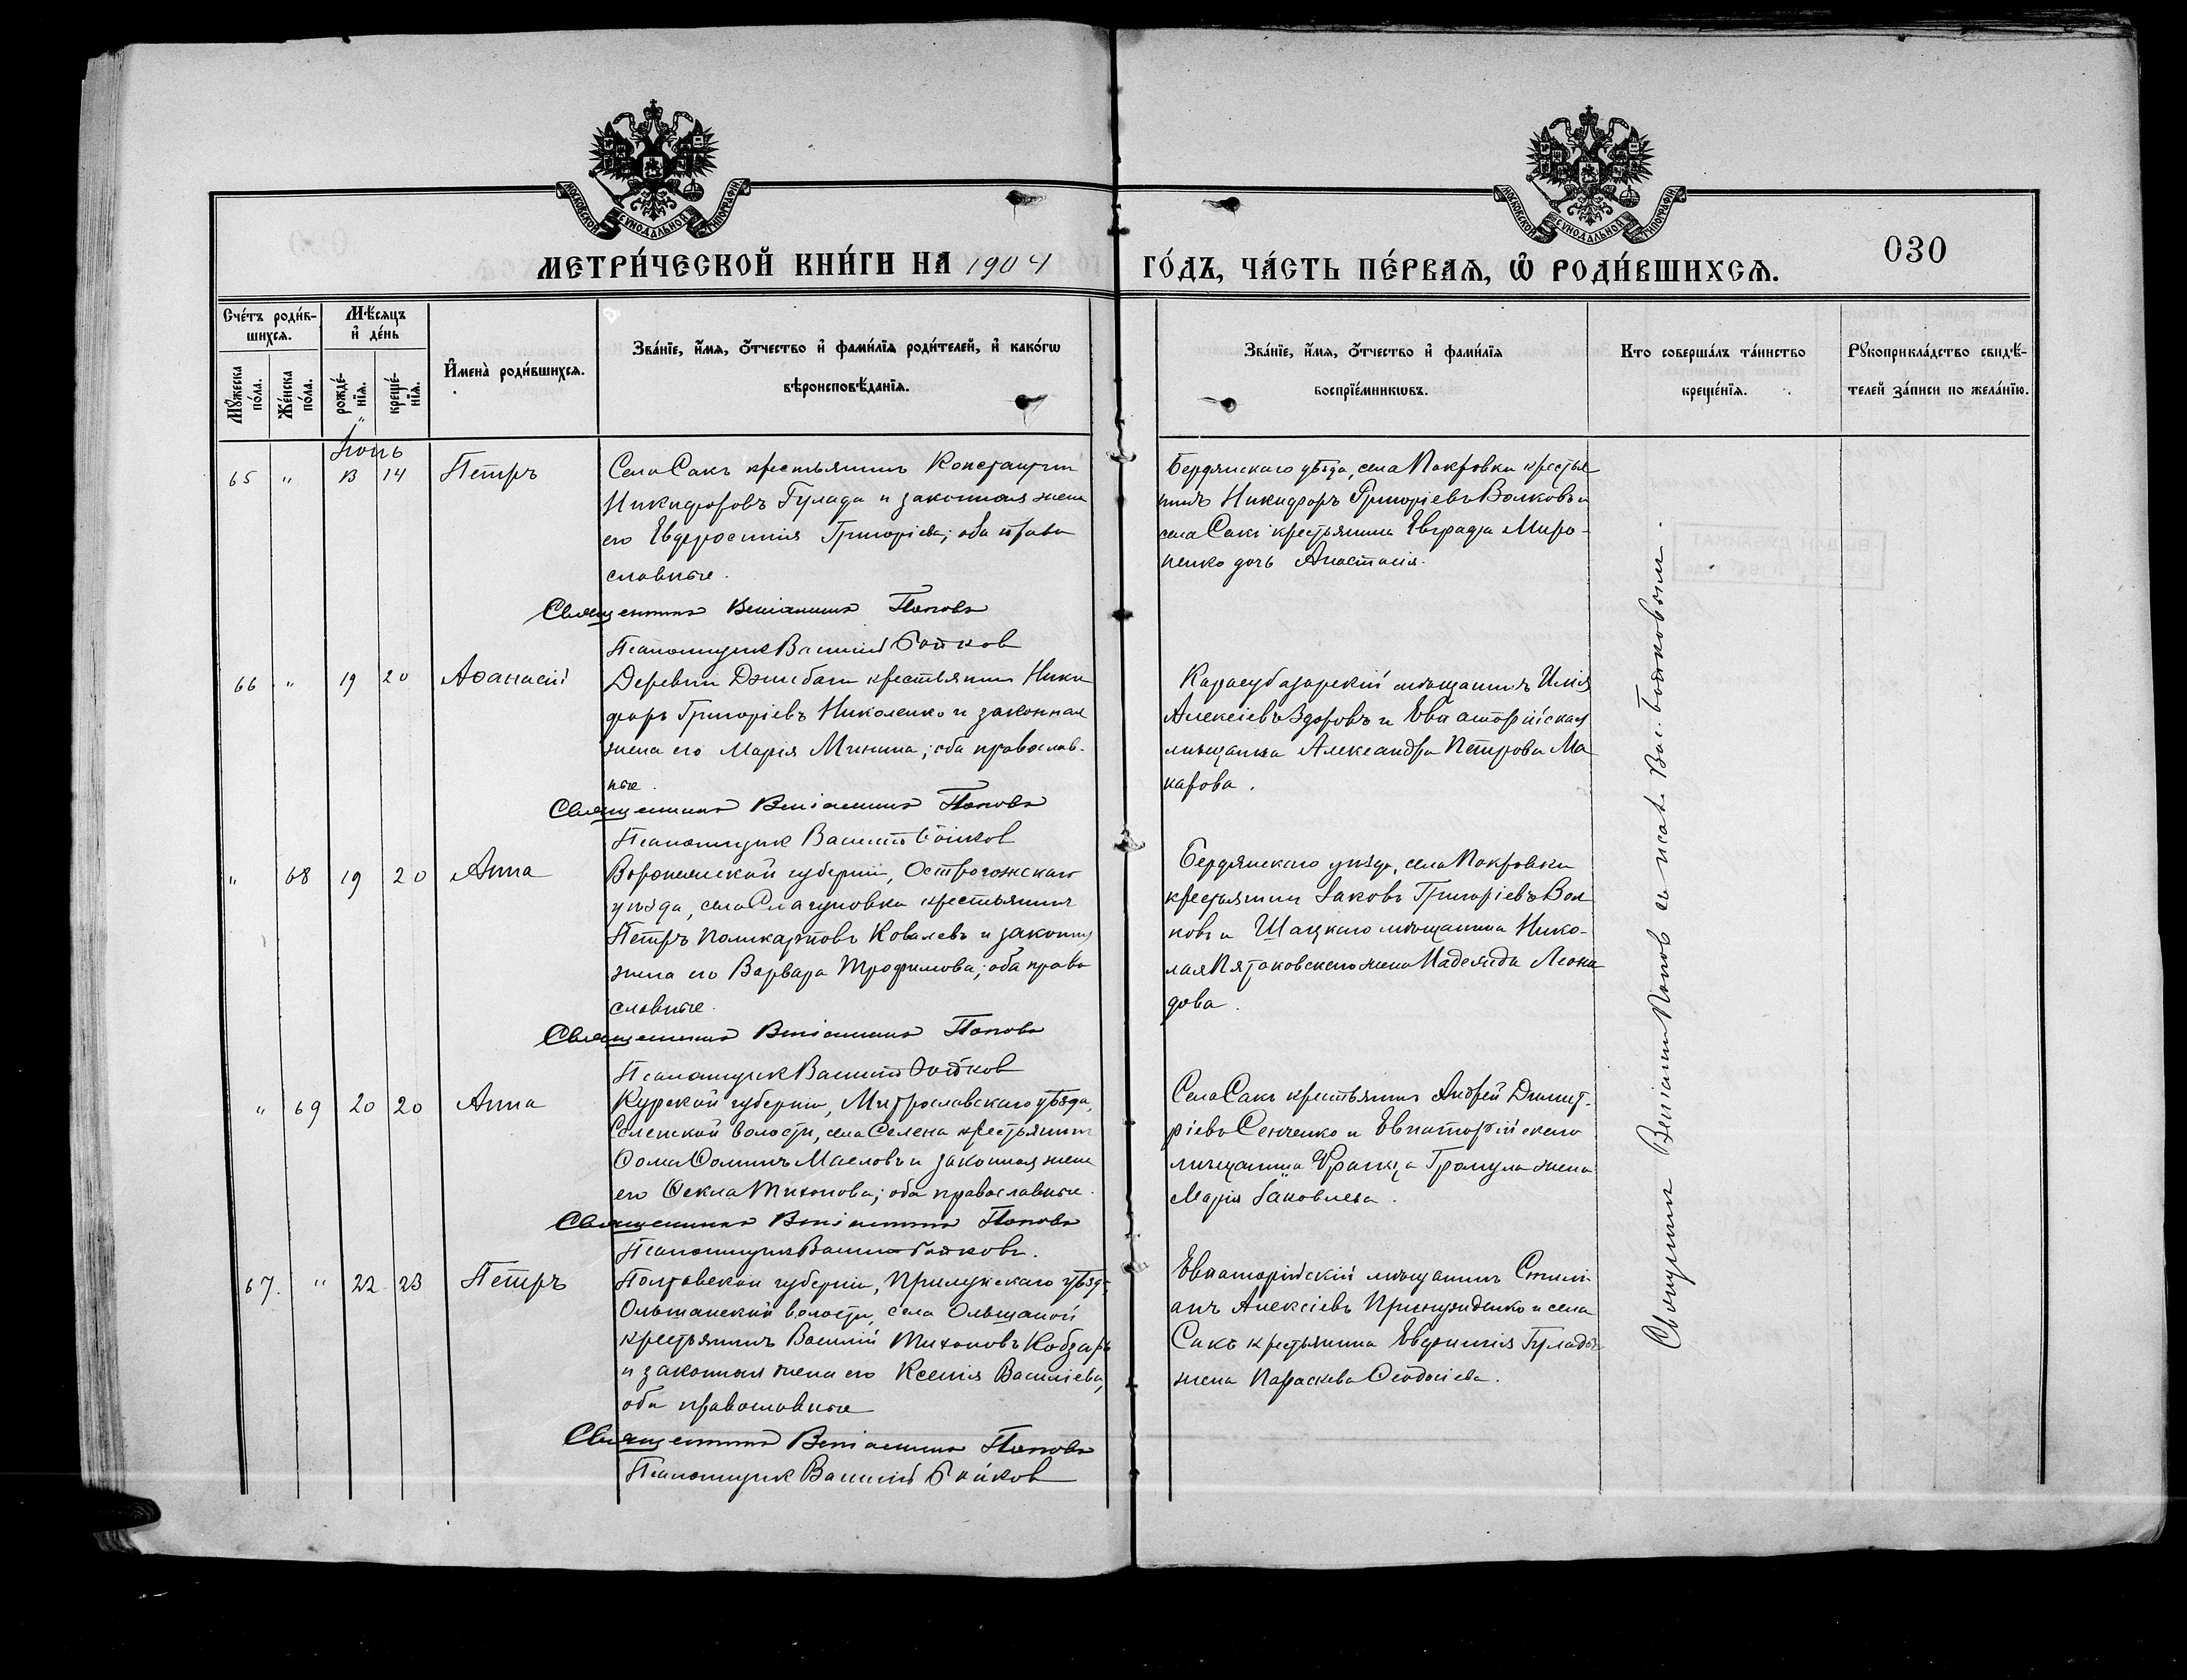 МОСКОВСКОЙ СУНОДАЛЬНОЙ ТИПОГРАФІИ
МОСКОВСКОЙ СУНОДАЛЬНОЙ ТИПОГРАФІИ
МЕТРИ́ЧЕСКОЙ КНИ́ГИ НА 1904
ГО́ДЪ, ЧА́СТЬ ПЕ́РВАѦ, Ѿ РОДИ́ВШИХСѦ.
030
Сче́тъ роди́в-
шихсѧ.
Мꙋ́жеска по́ла.
Же́нска по́ла.
Мѣ́сѧцъ
и҆ де́нь
рожде́-
нїѧ.
креще́-
нїѧ.
И҆мена̀ роди́вшихсѧ.
Зва́нїе, и҆́мѧ, ѻ҆́тчество и҆ фами́лїѧ роди́телей, и҆ како́гѡ
вѣроисповѣ́данїѧ.
Зва́нїе, и҆́мѧ, ѻ҆́тчество и҆ фами́лїѧ
воспрїе́мникѡвъ.
Кто соверша́лъ та́инство
креще́нїѧ.
Рꙋкоприкла́дство свидѣ́-
телей за́писи по жела́нїю.
Іюнь
65 " 13 14 Петръ
Села Сакъ крестьянинъ Константин
Никифоровъ Гулада и законная жена
его Евфросинія Григоріева; оба право
славные.
Священникъ Веніаминъ Поповъ
Псаломщик Василій Бойков
Бердянскаго уѣзда, села Покровки крестья
нинъ Никифоръ Григоріевъ Волковъ и
села Сакъ крестьянина Евграфа Миро-
ненко дочь Анастасія.
66 " 19 20 Аѳанасій
Деревни Джабачи крестьянин Ники
форъ Григоріевъ Николенко и законная
жена его Марія Минина; оба православ-
ные.
Священникъ Веніаминъ Поповъ
Псаломщик Василій Бойков
Карасубазарскій мѣщанинъ Илія
Алексіевъ Здоровъ и Евпаторійская
мѣщанка Александра Петрова Ма
карова.
" 68 19 20 Анна
Воронежской губерніи, Острогожскаго
уѣзда, села крестьянинъ
Петръ Поликарповъ Ковалевъ и законная
жена его Варвара Трофимова; оба право
славные.
Священникъ Веніаминъ Поповъ
Псаломщик Василій Бойков
Бердянскаго уѣзда, села Покровки
крестьянин Іаковъ Григоріевъ Вол
ковъ и Шацкаго мѣщанина Нико-
лая Пятаковскаго жена Надежда Леони
дова.
" 69 20 20 Анна
Курской губерніи, уѣзда,
волости, села крестьянинъ
Ѳома Ѳоминъ Масловъ и законная жена
его Ѳекла Тихонова; оба православные.
Священникъ Веніаминъ Поповъ
Псаломщикъ Василій Бойковъ.
Села Сакъ крестьянинъ Андрей Димит-
ріевъ Сенченко и Евпаторійскаго
мѣщанина Франца Громула жена
Марія Іаковлева.
67. " 22 23 Петръ
Полтавской губерніи, Прилукскаго уѣзда,
Ольшанской волости, села Ольшаной
крестьянинъ Василій Тихоновъ Кобзарь
и законная жена его Ксенія Василіева,
оба православные
Священникъ Веніаминъ Поповъ
Псаломщик Василій Бойков
Евпаторійскій мѣщанинъ Стили-
анъ Алексіевъ и села
Сакъ крестьянина Евфимія Гулады
жена Параскева Ѳеодосіева.
Священникъ Веніаминъ Попов съ псал. Вас. Бойковым.